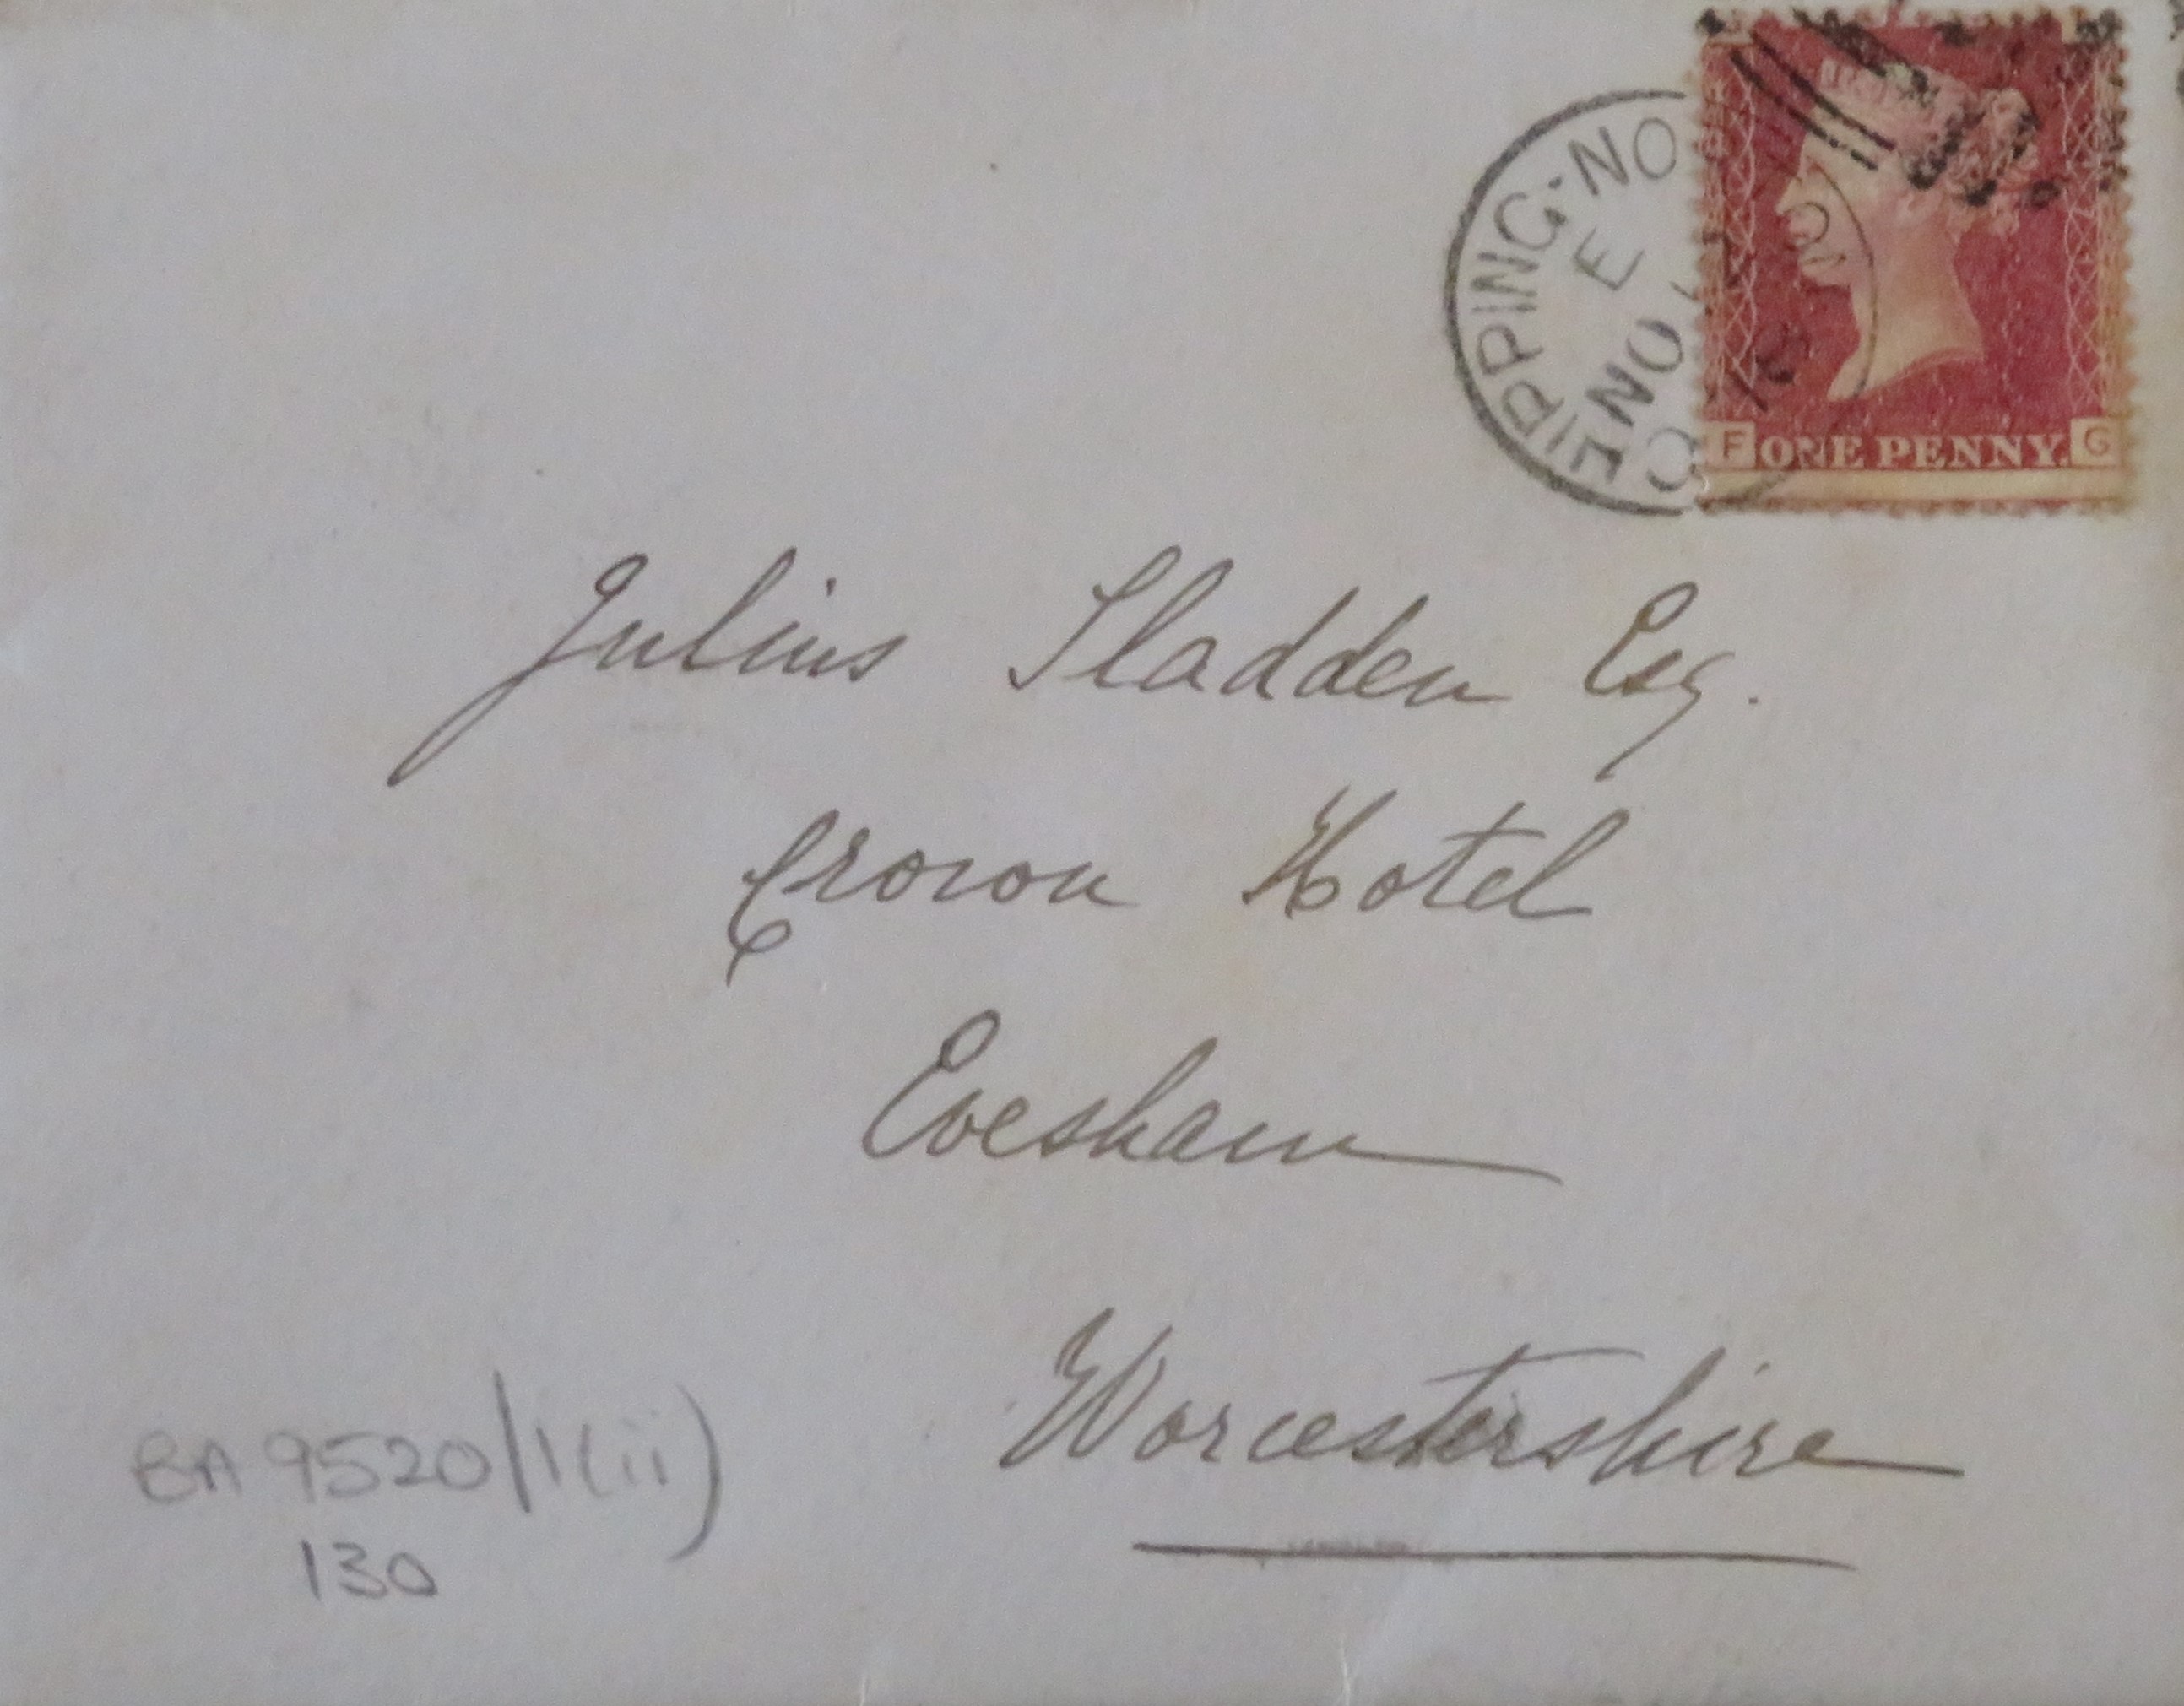 CHIPPING·NO
E
NO
F ONE PENNY. G
Julius Sladden Esq.
Crown Hotel
Evesham
Worcestershire
BA 9520/1(ii)
130